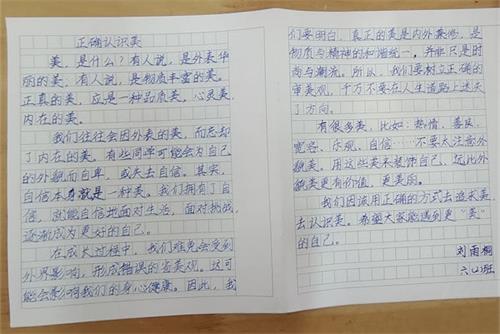 正确认识美
美,是什么?有人说,是外表华
丽的美,有人说,是物质丰富的美。
正真的美,应是一种品质美,心灵美,
内在的美。
我们往往会因外表的美,而忽却
了内在的美。有些同学可能会为自己
的外貌而自卑,或失去自信。其实,
自信本身就是一种美。我们拥有了自
信,就能自信地面对生活,面对挑战,
逐渐成为更好的自己。
在成长过程中,我们难免会受到
外界影响,形成错误的审美观。这可
能会影响我们的身心健康。因此,我
们要明白,真正的美是内外兼修,是
物质与精神的和谐统一,并非只是时
尚与潮流。所以,我们要树立正确的
审美观,千万不要在人生道路上迷失
了方向。
有很多美,比如:热情、善良、
宽容、乐观、自信……不要太注意外
貌美。用这些美来装饰自己,远比外
貌美更有价值,更美丽。
我们因该用正确的方式去追求美,
去认识美。希望大家能遇到更“美”
的自己。
刘雨桐